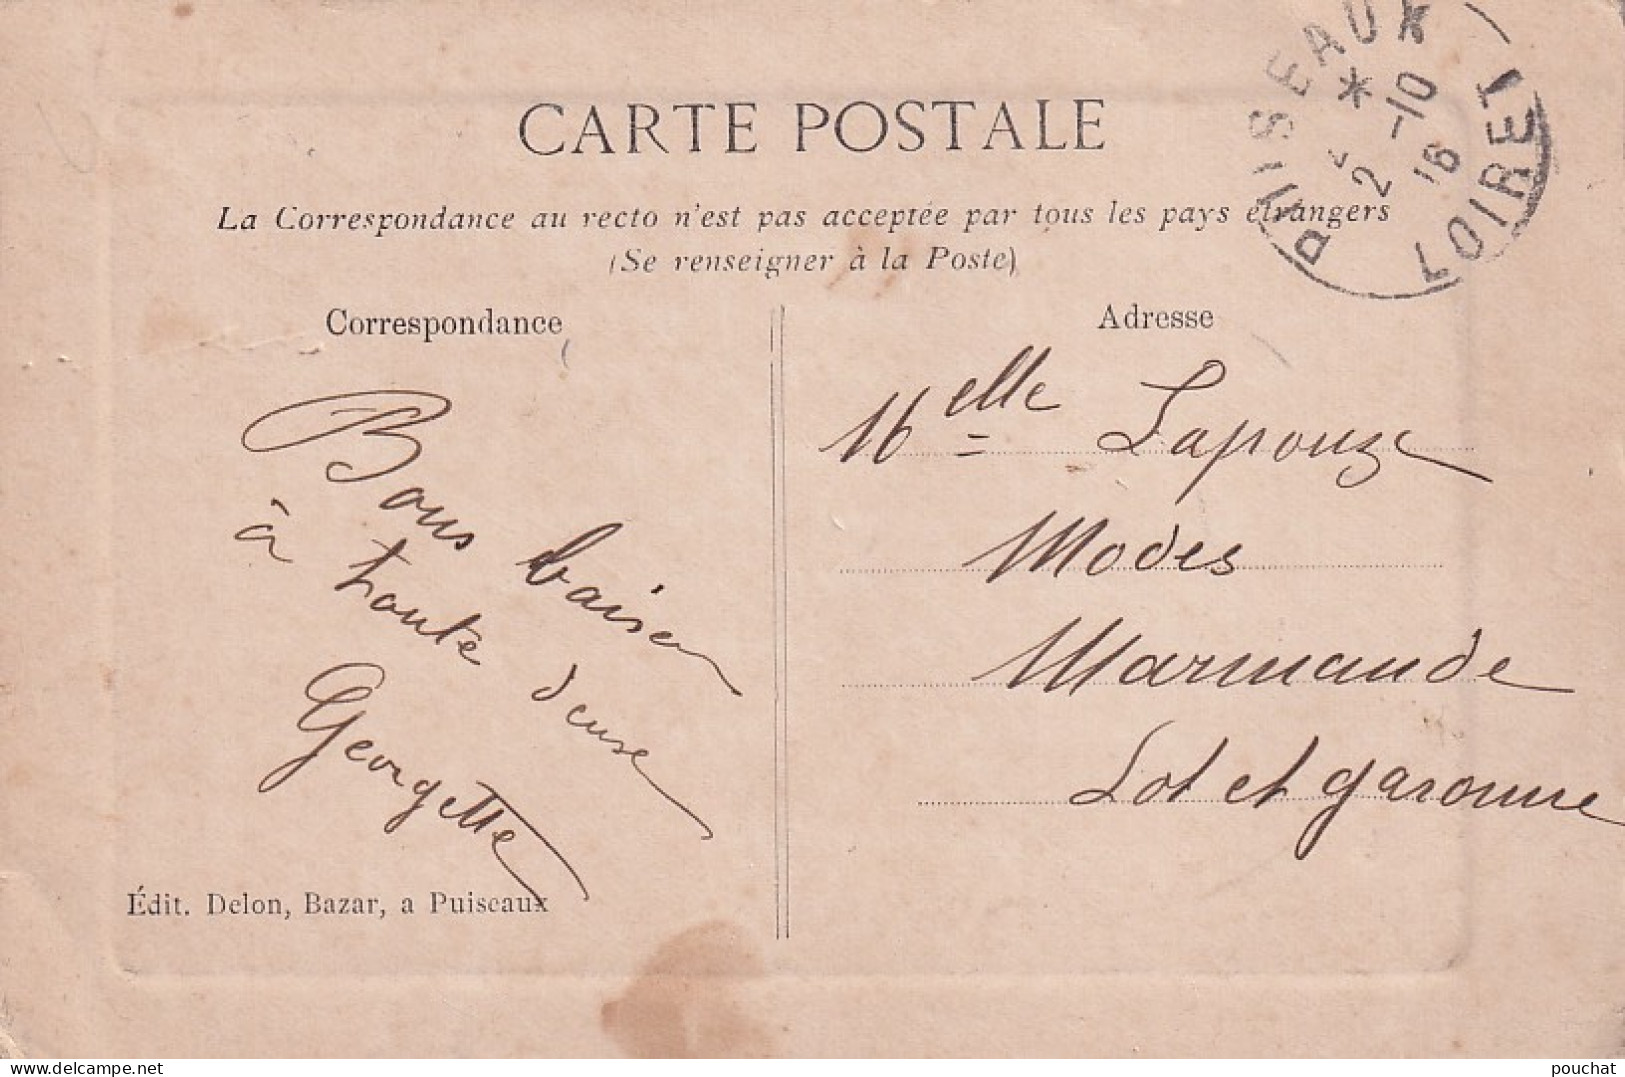 CARTE POSTALE
La Correspondance au recto n'est pas acceptée par tous les pays étrangers
(Se renseigner à la Poste)
PUISEAUX
*
2 -10
16
LOIRET
Correspondance
Bons baisers
à toute
Georgette
Édit. Delon, Bazar, a Puiseaux
Adresse
Melle Lapouze
Modes
Marmande
Lot et garonne
pouchat